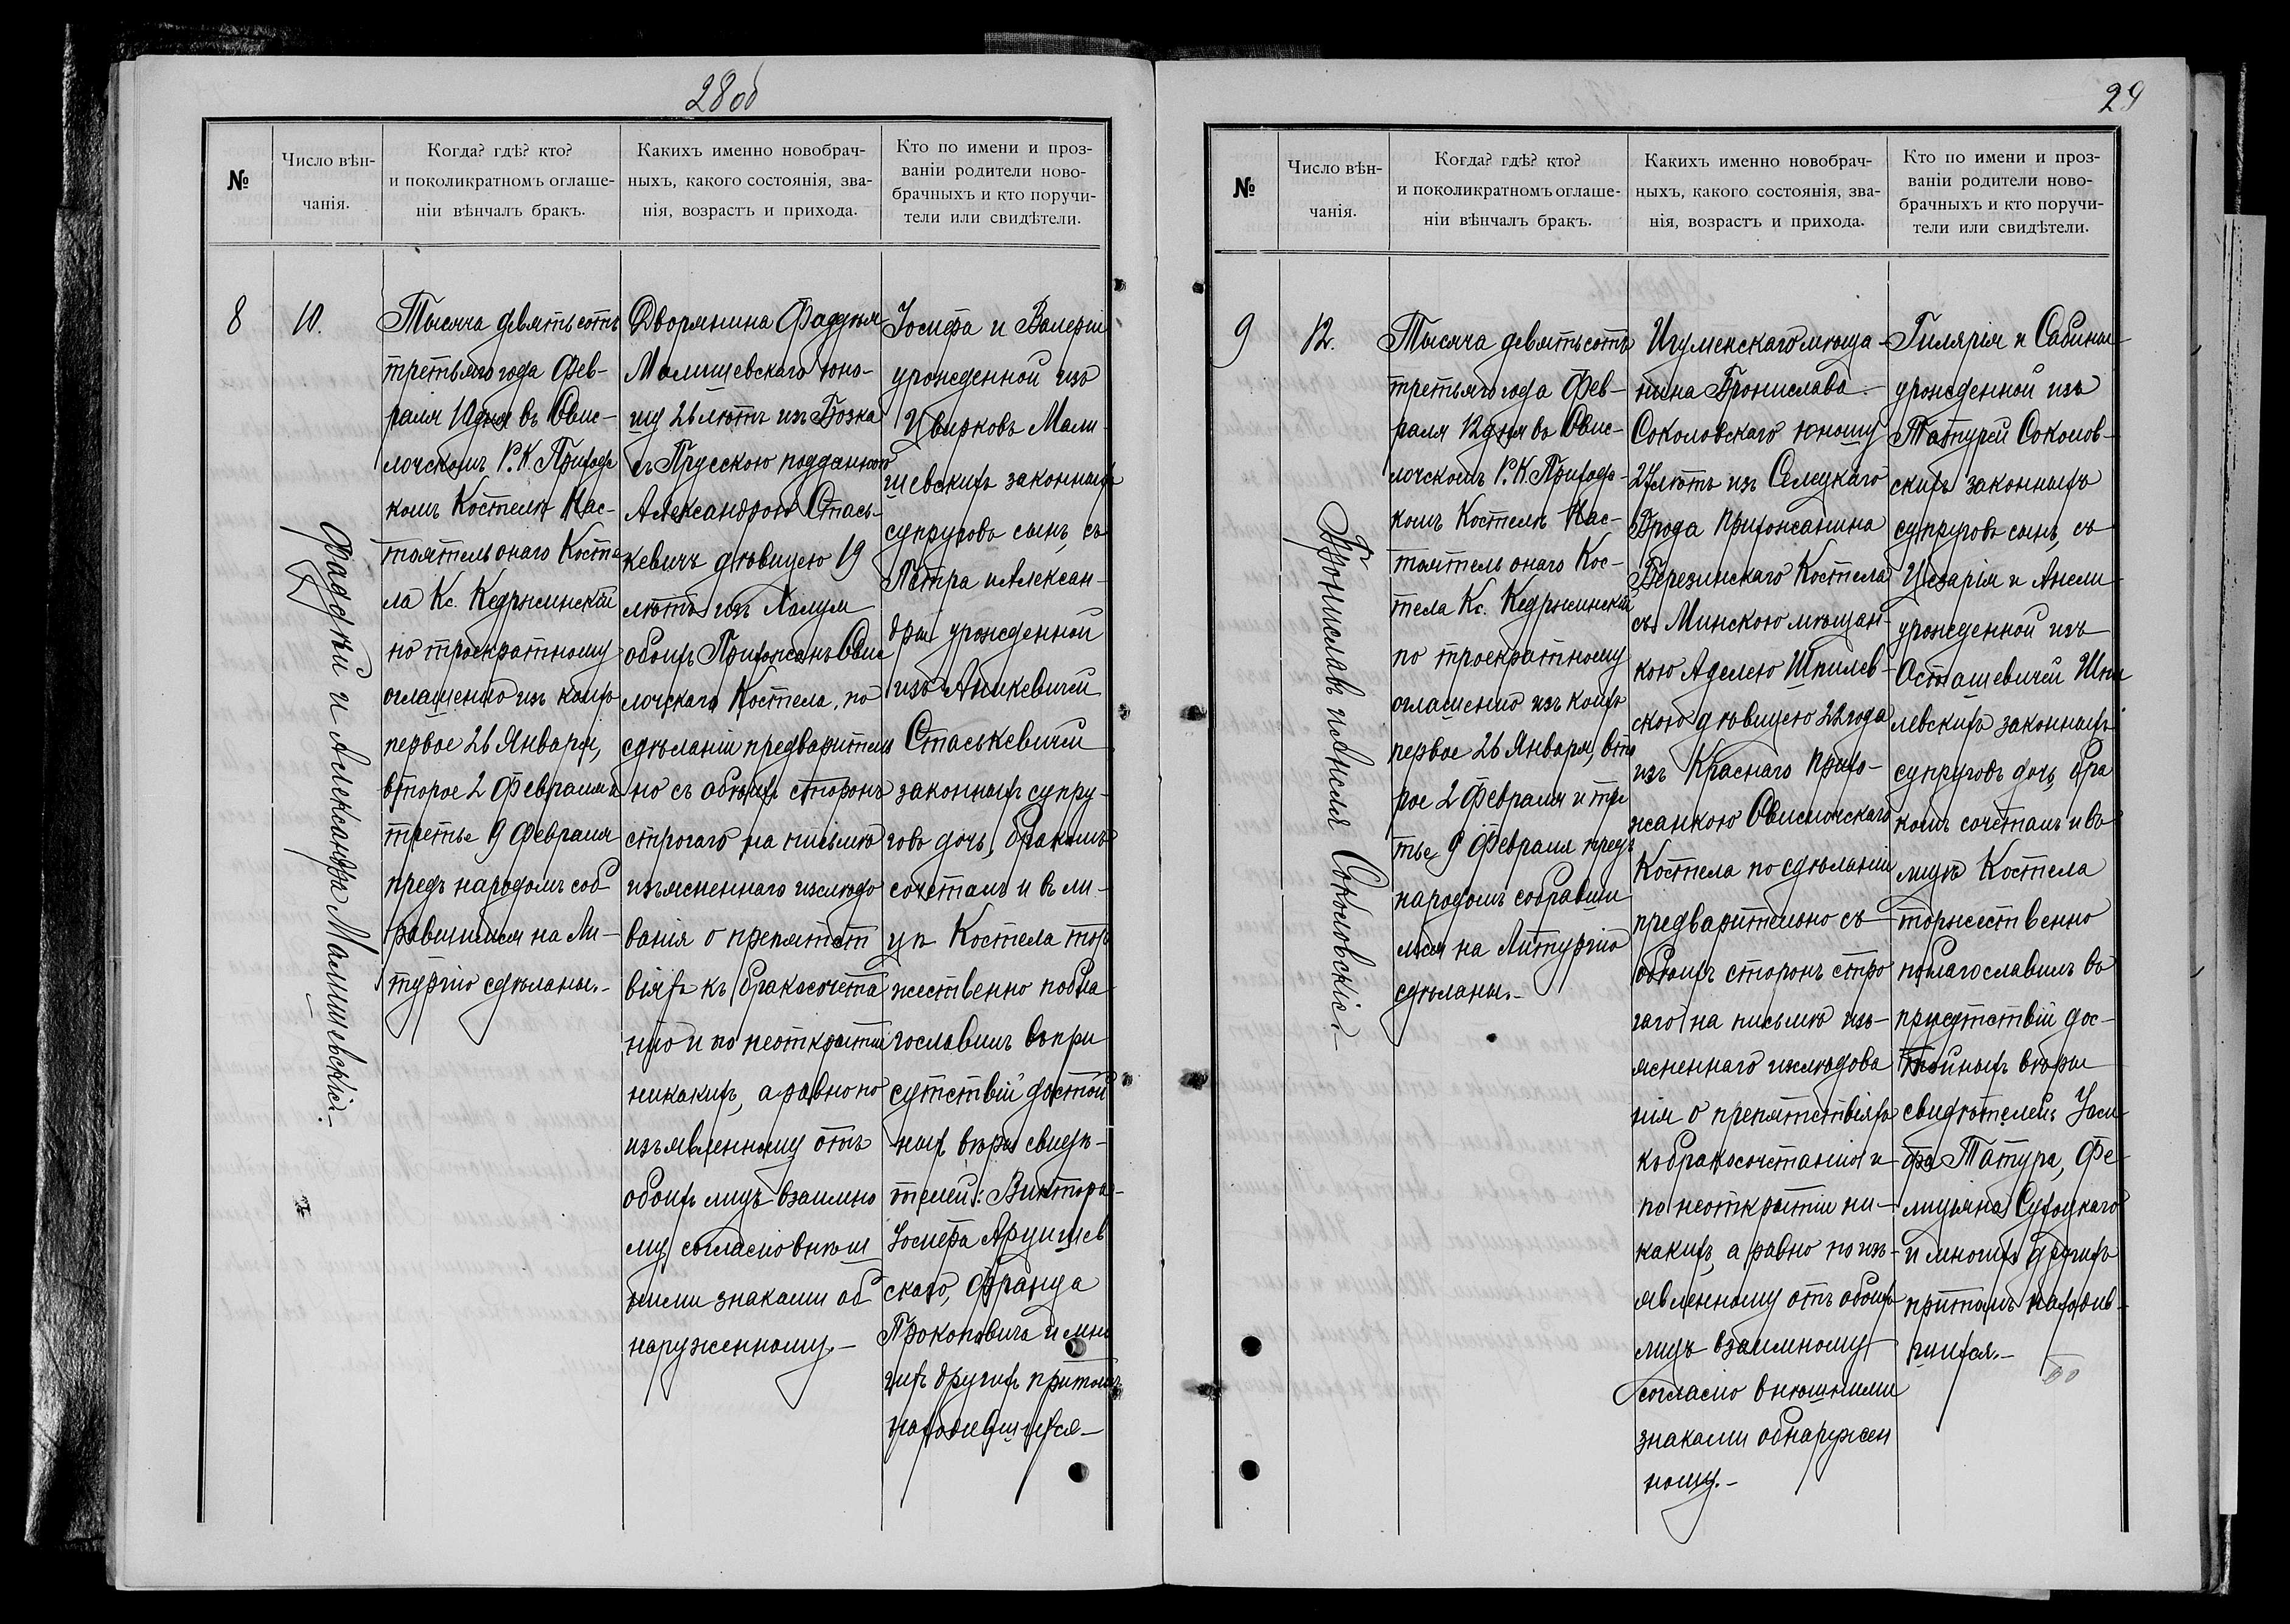 28об
№
Число вѣн-
чанія.
Когда? гдѣ? кто?
и поколикратномъ оглаше-
ніи вѣнчалъ бракъ.
Какихъ именно новобрач-
ныхъ, какого состоянія, зва-
нія, возрастъ и прихода.
Кто по имени и проз-
ваніи родители ново-
брачныхъ и кто поручи-
тели или свидѣтели.
8
10.
Фаддѣй и Александра Малишевскіе.
Тысяча девятьсотъ
третьяго года Фев-
раля 10 дня въ Свис-
лочскомъ Р. К. Приходс
комъ Костелѣ Нас-
тоятель онаго Косте
ла Кс. Кедржинскій
по троекратному
оглашенію изъ коихъ
первое 26 Января,
второе 2 Февраля и
третье 9 Февраля
предъ народомъ соб
равшимся на Ли-
тургію сдѣланы.-
Дворянина Фаддѣя
Малишевскаго юно-
шу 26 лѣтъ изъ
съ Прусскою подданною
Александрою Стась-
кевичъ дѣвицею 19
лѣтъ изъ
обоихъ Прихожанъ Свис
лочскаго Костела, по
сдѣланіи предварител
но съ обѣихъ сторонъ
строгаго на письмѣ
изъясненнаго изслѣдо
ванія о препятст
віяхъ къ бракосочета
нію и по неоткрытіи
никакихъ, а равно по
изъявленному отъ
обоихъ лицъ взаимно
му согласію внѣш
ними знаками об
наруженному.-
Іосифа и Валеріи
урожденной изъ
Цвирковъ Мали-
шевскихъ законныхъ
супруговъ сынъ, съ
Петра и Алексан-
дры урожденной
изъ Аникевичей
Стаськевичей
законныхъ супру-
говъ дочь, бракомъ
сочеталъ и въ ли-
цѣ Костела тор
жественно побла-
гословилъ въ при
сутствіи достой
ныхъ вѣры свидѣ-
телей: Виктора
Іосифа
скаго, Франца
Прокоповича и мно
гихъ другихъ притомъ
находившихся.-
29
№
Число вѣн-
чанія.
Когда? гдѣ? кто?
и поколикратномъ оглаше-
ніи вѣнчалъ бракъ.
Какихъ именно новобрач-
ныхъ, какого состоянія, зва-
нія, возрастъ и прихода.
Кто по имени и проз-
ваніи родители ново-
брачныхъ и кто поручи-
тели или свидѣтели.
9
12.
Брониславъ и Аделя Соколовскіе.-
Тысяча девятьсотъ
третьяго года Фев-
раля 12 дня въ Свис-
лочскомъ Р. К. Приходс-
комъ Костелѣ Нас-
тоятель онаго Кос-
тела Кс. Кедржинскій
по троекратному
оглашенію изъ коихъ
первое 26 Января, вто
рое 2 Февраля и тре
тье 9 Февраля предъ
народомъ собравши
мся на Литургію
сдѣланы.-
Игуменскаго мѣща-
нина Бронислава
Соколовскаго юношу
27 лѣтъ изъ Селецкаго
Брода Прихожанина
Березинскаго Костела
съ Минскою мѣщан-
кою Аделею Шпилев-
скою дѣвицею 22 года
изъ Краснаго Прихо-
жанкою Свислочскаго
Костела по сдѣланіи
предварительно съ
обѣихъ сторонъ стро
гаго на письмѣ изъ-
ясненнаго изслѣдова
нія о препятствіяхъ
къ бракосочетанію и
по неоткрытіи ни-
какихъ, а равно по изъ-
явленному отъ обоихъ
лицъ взаимному
согласію внѣшними
знаками обнаружен
ному.-
Гилярія и Сабины
урожденной изъ
Татурей Соколов-
скихъ законныхъ
супруговъ сынъ, съ
Цезарія и Анели
урожденной изъ
Осташевичей Шпи
левскихъ законныхъ
супруговъ дочь, бра
комъ сочеталъ и въ
лицѣ Костела
торжественно
поблагославилъ въ
присутствіи дос-
тойныхъ вѣры
свидѣтелей: Іоси-
фа Татура, Фе-
лиціана Сухоцкаго
и многихъ другихъ
притомъ находив-
шихся.-